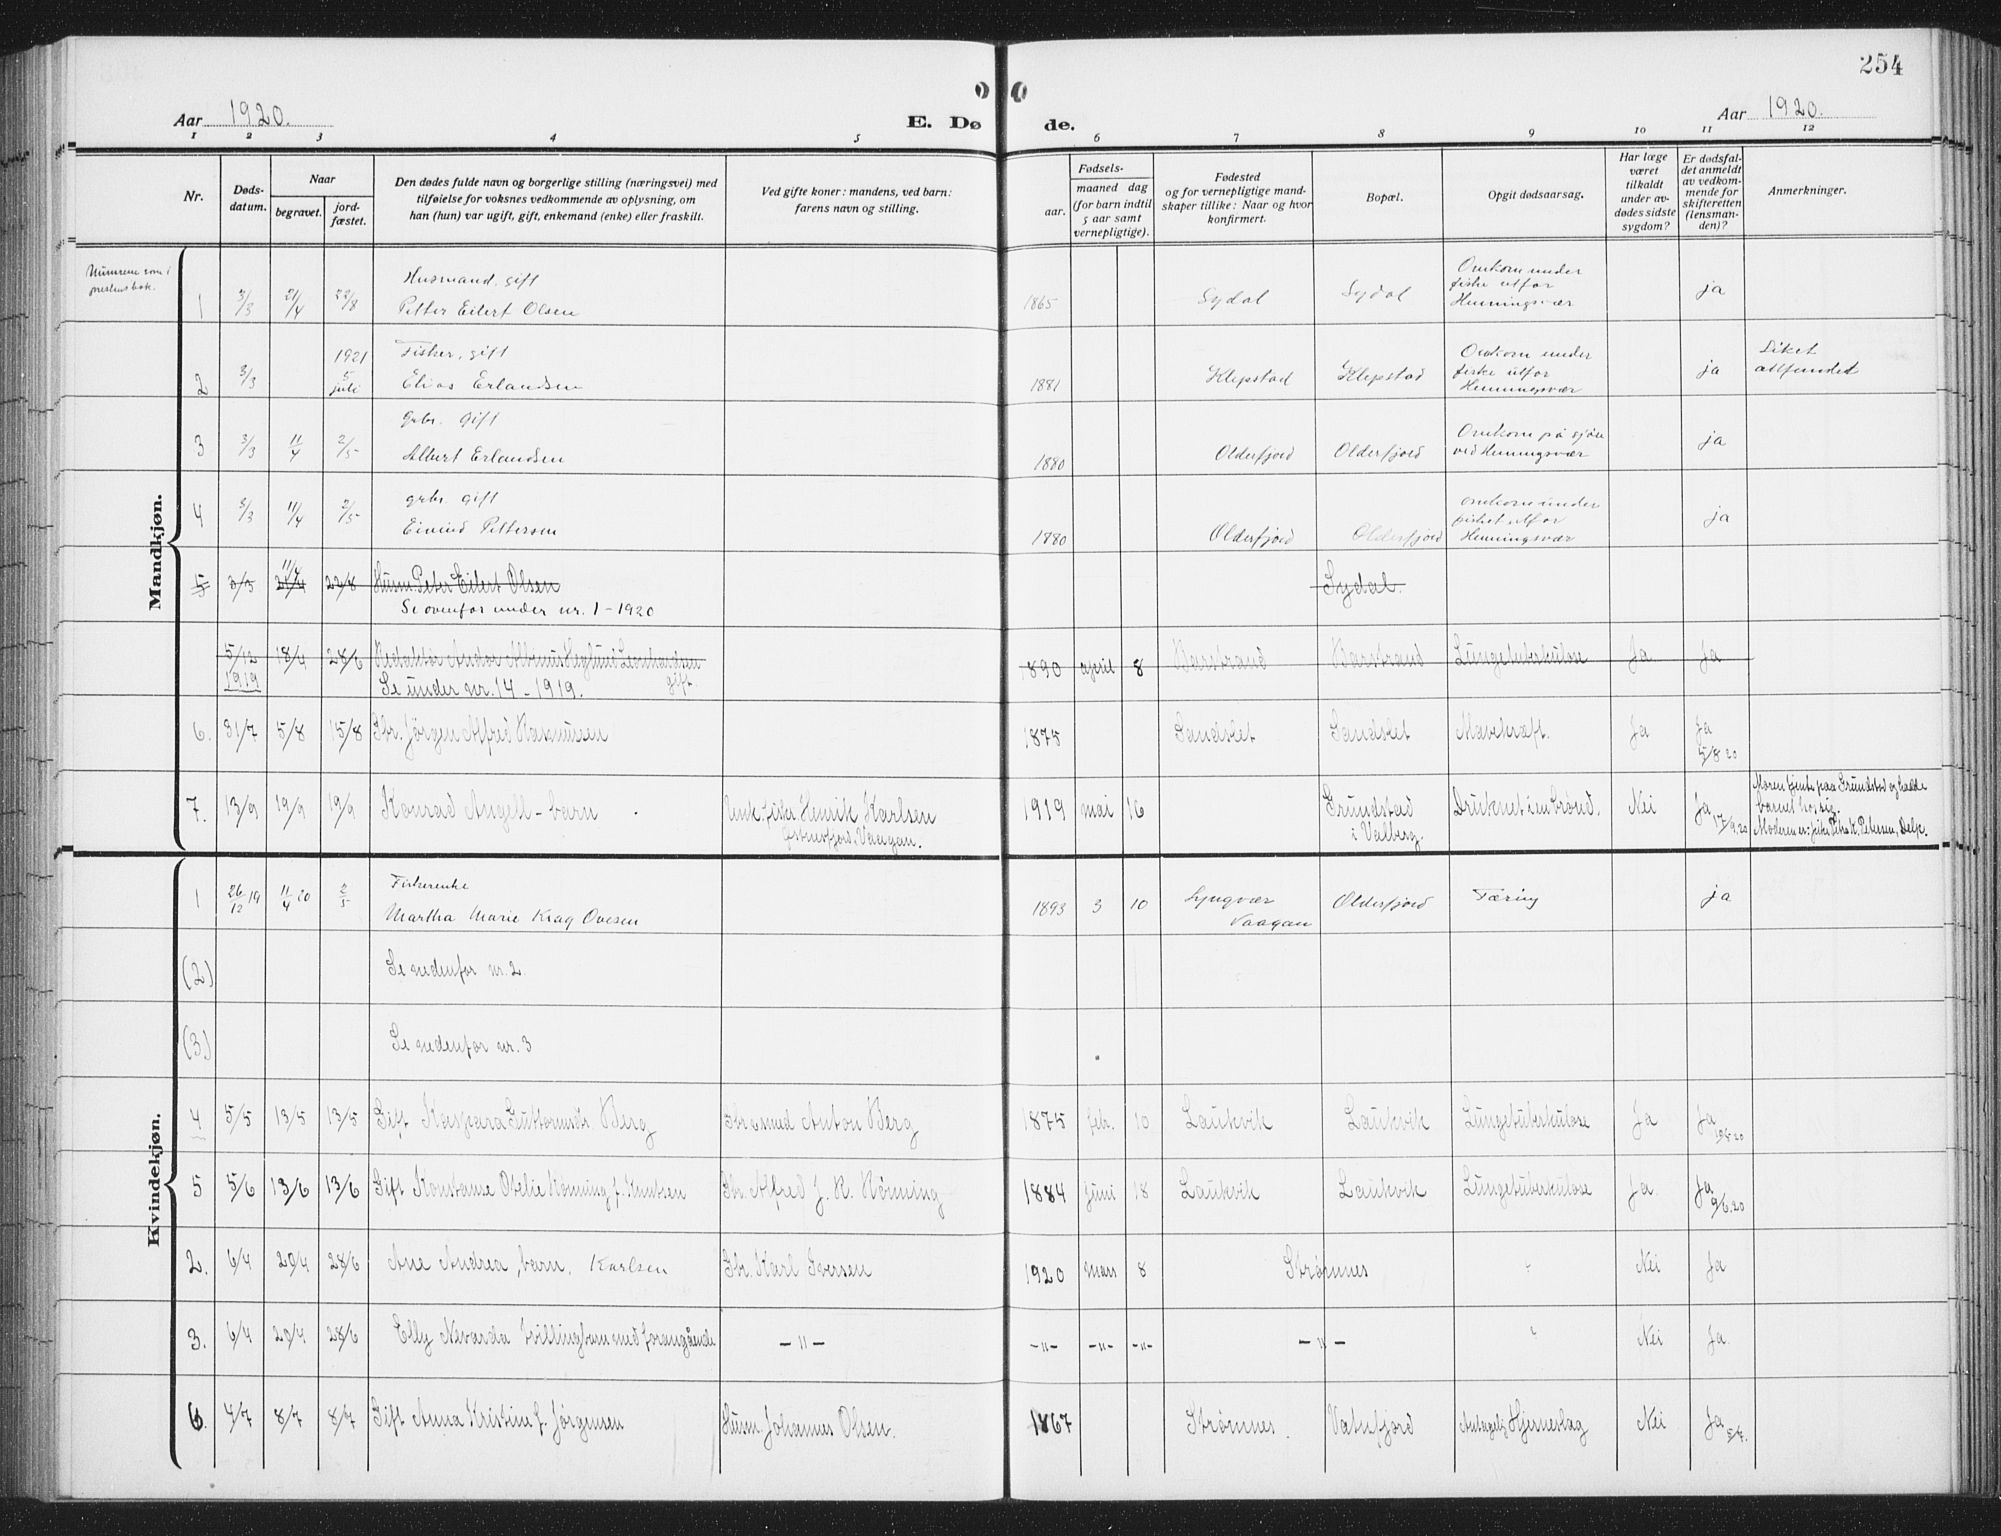 254
Aar 1920.
E. Døde.
Aar 1920.
1 2 3 4 5 6 7 8 9 10 11 12
Nr.
Døds-
datum.
Naar
begravet.
jord-
fæstet.
Den dødes fulde navn og borgerlige stilling (næringsvei) med
tilføielse for voksnes vedkommende av oplysning, om
han (hun) var ugift, gift, enkemand (enke) eller fraskilt.
Ved gifte koner: mandens, ved barn:
farens navn og stilling.
Fødsels-
aar.
maaned dag
(for barn indtil
5 aar samt
vernepligtige).
Fødested
og for vernepligtige mand-
skaper tillike: Naar og hvor
konfirmert.
Bopæl.
Opgit dødsaarsag.
Har læge
været
tilkaldt
under av-
dødes sidste
sygdom?
Er dødsfal-
det anmeldt
av vedkom-
mende for
skifteretten
(lensman-
den)?
Anmerkninger.
Numrene som i
prestens bok.
Mandkjøn.
1 3/3 21/4 22/8 Husmand, gift
Petter Eilert Olsen 1865 Sydal Sydal Omkom under
fiske utfor
Henningsvær ja
2 3/3 1921
5
juli Fisker, gift
Elias Erlandsen 1881 Klepstad Klepstad Omkom under
fiske utfor
Henningsvær ja Liket
3 3/3 11/4 2/5 Grbr. Gift
Albert Erlandsen 1880 Olderfjord Olderfjord Omkom på sjøen
ved Henningsvær ja
4 3/3 11/4 2/5 grbr. gift
Eivind Pettersen 1880 Olderfjord Olderfjord omkom under
fisket utfor
Henningsvær ja
5 3/3 11/4 21/4 22/8 Husm. Peter Eilert Olsen Sydal.
Se ovenfor under nr. 1 - 1920
5/12
1919 18/4 28/6 Redaktør Andor Leonhardsen
gift. 1890 april 8 Barstrand Barstrand Lungetuberkulose Ja Ja
Se under nr. 14 - 1919.
6. 31/7 5/8 15/8 Gbr. Jørgen Alfred Rasmussen 1875 Sandslet Sandslet Mavekræft. Ja Ja
5/8 20
7. 13/9 19/9 19/9 Konrad Angell - barn. Unk. fisker Henrik Karlsen
Østnesfjord, Vaagan. 1919 mai 16 Grundstad
i Valberg. Druknet i en brønd. Nei Ja
17/9.20 Moren tjente paa Grundstad og hadde
barnet hos sig.
Moderen er: pike Petra K. Petersen, Delp.
Kvindekjøn.
1 26/12 19 11/4 20 2/5 Fiskerenke
Martha Marie Krag Ovesen 1893 3 10 Lyngvær
Vaagan Olderfjord Tæring ja
(2) Se nedenfor nr. 2.
(3) Se nedenfor nr. 3
4 5/5 13/5 13/5 Gift Kaspara Guttormsdt. Berg Anton Berg 1875 febr. 10 Laukvik Laukvik Lungetuberkulose Ja Ja
5 5/6 13/6 13/6 Gift Konstanse Otelie Rønning f. Knutsen Gbr. Alfred J. R. Rønning 1884 Juni 18 Laukvik Laukvik Lungetuberkulose Ja. Ja
9/6.20
2. 6/4 20/4 28/6 Ane Andrea, barn. Karlsen Gbr. Karl Iversen 1920 Mars 8 Strømnes ? Nei Ja
3. 6/4 20/4 28/6 Elly Nivarda tvillingbarn med forangående - " - - " - - " - - " - - " - ? Nei Ja.
6. 4/7 8/7 8/7 Gift Anna Kristine f. Jørgensen Husm. Johannes Olsen. 1867 Strømnes. Vatnfjord Antagelig Hjerneslag Nei Ja
5/7.